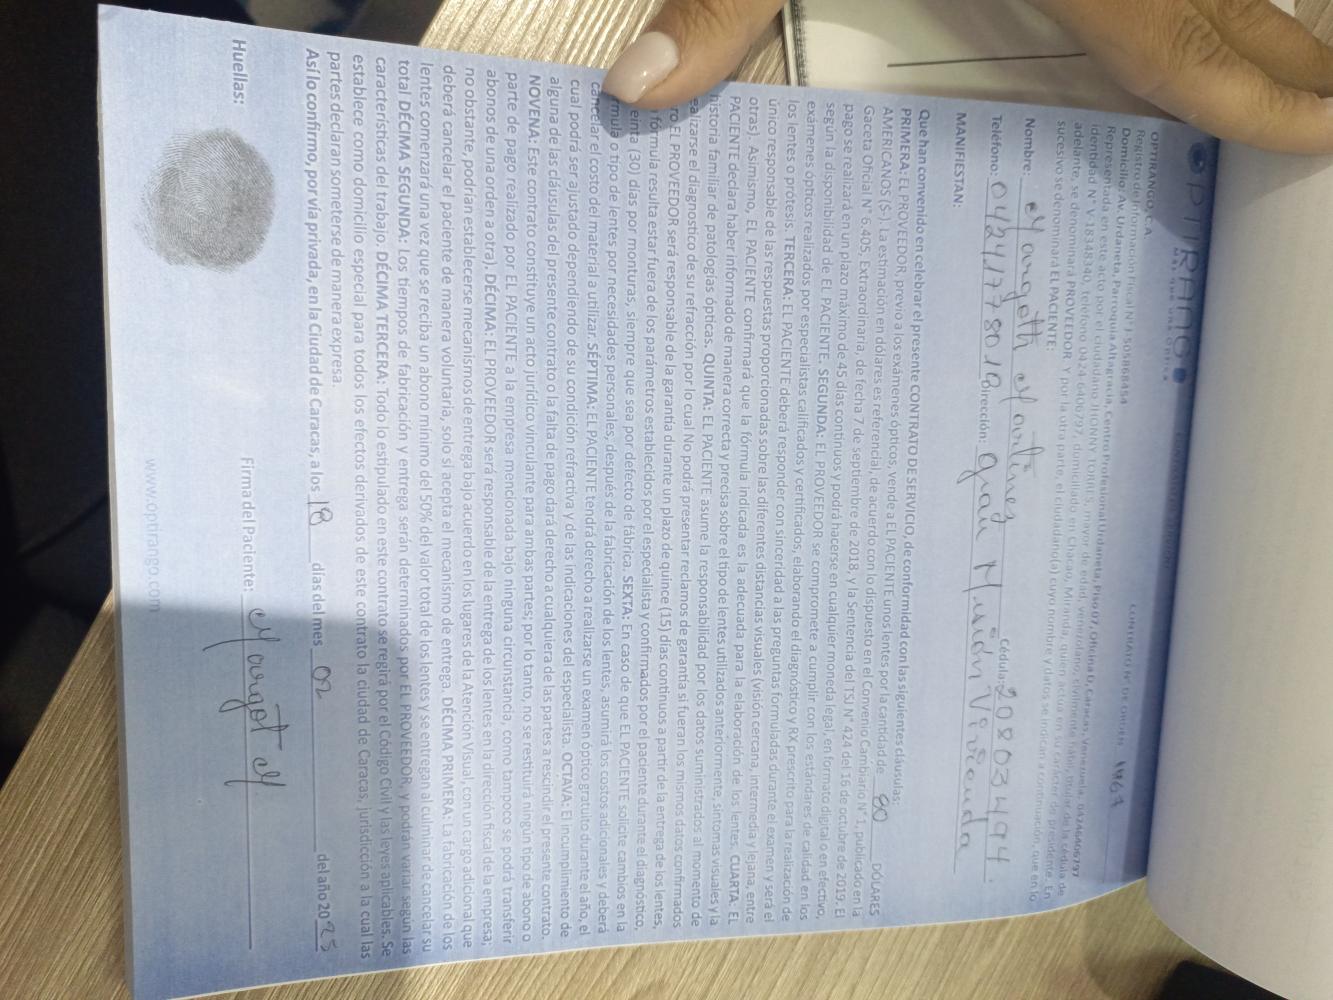 OPTIRANGO
MÁS QUE UNA ÓPTICA
CONTRATO DE SERVICIO
CONTRATO N° DE ORDEN 1464
OPTIRANGO C.A.
Registro de Información Fiscal N° J-505868454
Domicilio: Av. Urdaneta, Parroquia Altagracia, Centro Profesional Urdaneta, Piso 07, Oficina D, Caracas, Venezuela. 04246406797
Representada en este acto por el ciudadano JHONNY TORRES, mayor de edad, venezolano, civilmente hábil, titular de la cédula de
identidad N° V-18348340, teléfono 0424-6406797, domiciliado en Chacao, Miranda, quien actúa en su carácter de presidente. En
adelante, se denominará PROVEEDOR. Y por la otra parte, el ciudadano(a) cuyo nombre y datos se indicará a continuación, que en lo
sucesivo se denominará EL PACIENTE:
Nombre: Margoth Martinez Cédula: 20803494.
Teléfono: 04241778010 Dirección: gran Misión Vivienda
MANIFIESTAN:
Que han convenido en celebrar el presente CONTRATO DE SERVICIO, de conformidad con las siguientes cláusulas:
PRIMERA: EL PROVEEDOR, previo a los exámenes ópticos, vende a EL PACIENTE unos lentes por la cantidad de 80 DÓLARES
AMERICANOS ($-). La estimación en dólares es referencial, de acuerdo con lo dispuesto en el Convenio Cambiario N° 1, publicado en la
Gaceta Oficial N° 6.405, Extraordinaria, de fecha 7 de septiembre de 2018, y la Sentencia del TSJ N° 424 del 16 de octubre de 2019. El
pago se realizará en un plazo máximo de 45 días continuos y podrá hacerse en cualquier moneda legal, en formato digital o en efectivo,
según la disponibilidad de EL PACIENTE. SEGUNDA: EL PROVEEDOR se compromete a cumplir con los estándares de calidad en los
exámenes ópticos realizados por especialistas calificados y certificados, elaborando el diagnóstico y RX prescrito para la realización de
los lentes o prótesis. TERCERA: EL PACIENTE deberá responder con sinceridad a las preguntas formuladas durante el examen y será el
único responsable de las respuestas proporcionadas sobre las diferentes distancias visuales (visión cercana, intermedia y lejana, entre
otras). Asimismo, EL PACIENTE confirmará que la fórmula indicada es la adecuada para la elaboración de los lentes. CUARTA: EL
PACIENTE declara haber informado de manera correcta y precisa sobre el tipo de lentes utilizados anteriormente, síntomas visuales y la
historia familiar de patologías ópticas. QUINTA: EL PACIENTE asume la responsabilidad por los datos suministrados al momento de
ealizarse el diagnostico de su refracción por lo cual No podrá presentar reclamos de garantía si fueran los mismos datos confirmados
ro EL PROVEEDOR será responsable de la garantía durante un plazo de quince (15) días continuos a partir de la entrega de los lentes,
einta (30) días por monturas, siempre que sea por defecto de fábrica. SEXTA: En caso de que EL PACIENTE solicite cambios en la
fórmula resulta estar fuera de los parámetros establecidos por el especialista y confirmados por el paciente durante el diagnóstico,
mul o tipo de lentes por necesidades personales, después de la fabricación de los lentes, asumirá los costos adicionales y deberá
cancelar el costo del material a utilizar. SÉPTIMA: EL PACIENTE tendrá derecho a realizarse un examen óptico gratuito durante el año, el
cual podrá ser ajustado dependiendo de su condición refractiva y de las indicaciones del especialista. OCTAVA: El incumplimiento de
alguna de las cláusulas del presente contrato o la falta de pago dará derecho a cualquiera de las partes a rescindir el presente contrato.
NOVENA: Este contrato constituye un acto jurídico vinculante para ambas partes; por lo tanto, no se restituirá ningún tipo de abono o
parte de pago realizado por EL PACIENTE a la empresa mencionada bajo ninguna circunstancia, como tampoco se podrá transferir
abonos de una orden a otra). DÉCIMA: EL PROVEEDOR será responsable de la entrega de los lentes en la dirección fiscal de la empresa;
no obstante, podrían establecerse mecanismos de entrega bajo acuerdo en los lugares de la Atención Visual, con un cargo adicional que
deberá cancelar el paciente de manera voluntaria, solo si acepta el mecanismo de entrega. DÉCIMA PRIMERA: La fabricación de los
lentes comenzará una vez que se reciba un abono mínimo del 50% del valor total de los lentes y se entregan al culminar de cancelar su
total DÉCIMA SEGUNDA: Los tiempos de fabricación y entrega serán determinados por EL PROVEEDOR, y podrán variar según las
características del trabajo. DÉCIMA TERCERA: Todo lo estipulado en este contrato se regirá por el Código Civil y las leyes aplicables. Se
establece como domicilio especial para todos los efectos derivados de este contrato la ciudad de Caracas, jurisdicción a la cual las
partes declaran someterse de manera expresa.
Así lo confirmo, por vía privada, en la Ciudad de Caracas, a los 18 días del mes 02 del año 2025
Huellas:
Firma del Paciente: Margot M.
www.optirango.com